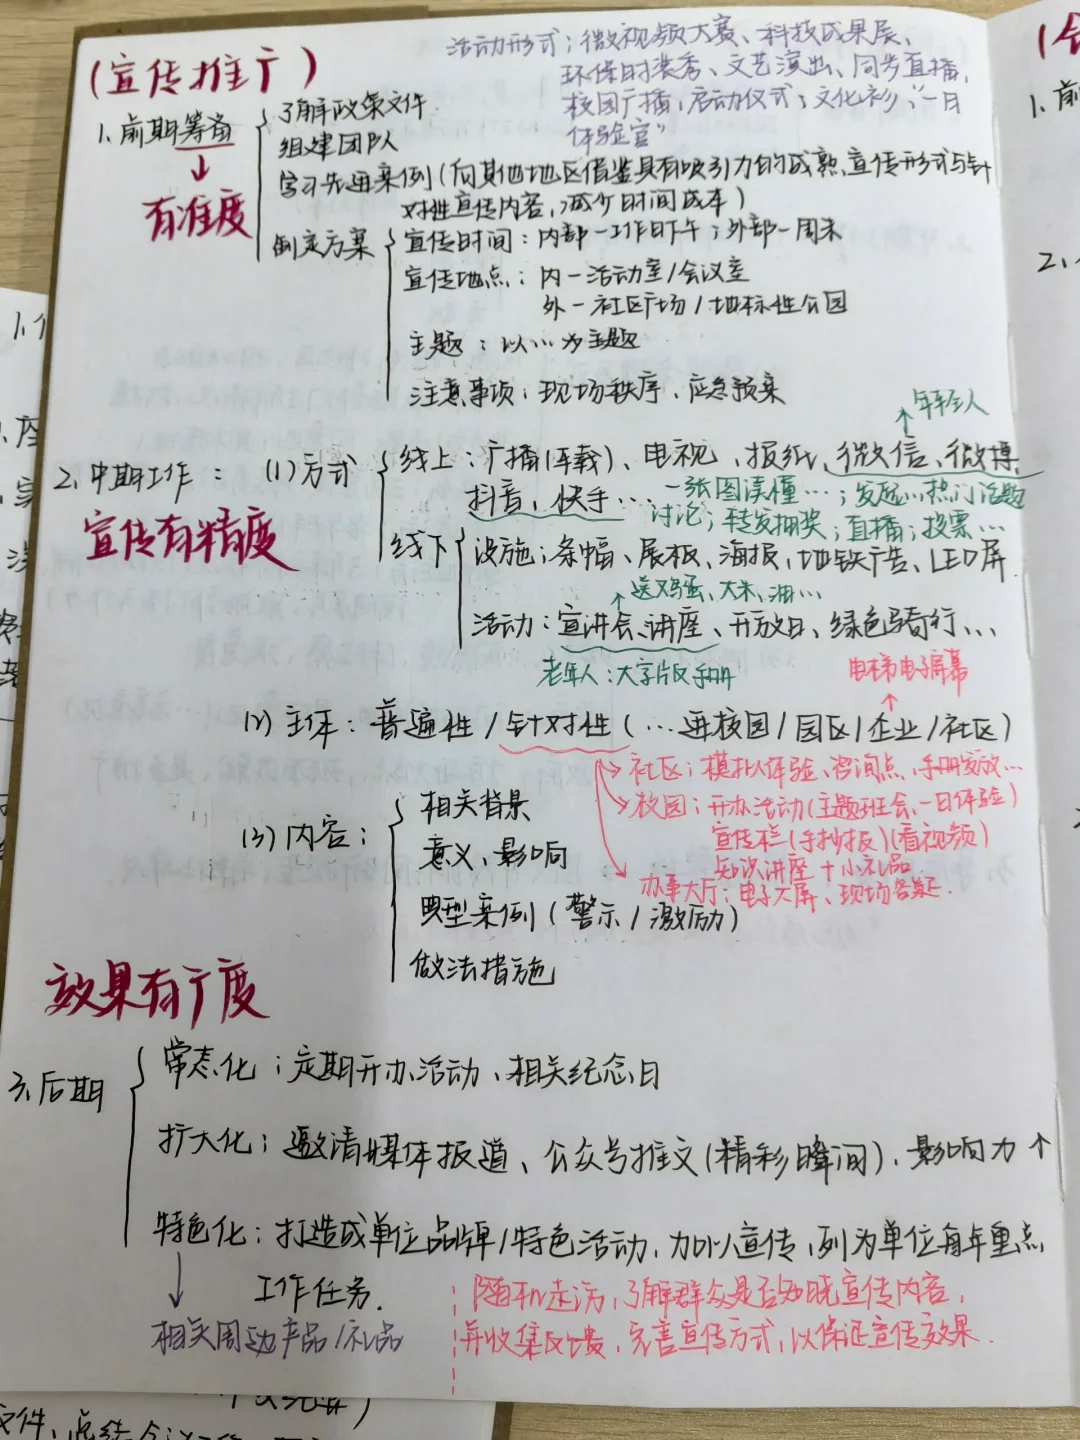 (宣传推广)
活动形式：微视频大赛、科技成果展、
环保时装秀、文艺演出、同步直播，
校园广播，启动仪式；文化衫，“一日
体验官”
1、前期筹备
有准度
了解政策文件
组建团队
学习先进案例(向其他地区借鉴具有吸引力的成熟宣传形式与针
对性宣传内容，减少时间成本)
制定方案
宣传时间：内部—工作日下午；外部—周末
宣传地点：内—活动室/会议室
外—社区广场/地标性公园
主题：以…为主题
注意事项：现场秩序，应急预案
年轻人
2、中期工作：
宣传有精度
(1)方式
线上：广播(车载)、电视、报纸、微信、微博
抖音、快手…
一张图读懂…；发起…热门话题
讨论；转发抽奖；直播；投票…
线下
设施；条幅、展板、海报，地铁广告、LED屏
送鸡蛋、大米、油…
活动：宣讲会、讲座、开放日、绿色骑行…
老年人：大字版手册
电梯电子屏幕
(2)主体：普遍性/针对性(…进校园/园区/企业/社区)
社区：模拟体验、咨询点、手册发放…
校园：开办活动(主题班会、一日体验)
宣传栏(手抄报)(看视频)
知识讲座+小礼品
办事大厅：电子大屏、现场答疑.
(3)内容：
相关背景
意义、影响
典型案例(警示/激励)
做法措施
效果有广度
3、后期
常态化：定期开办活动、相关纪念日
扩大化：邀请媒体报道、公众号推文(精彩瞬间)、影响力↑
特色化：打造成单位品牌/特色活动，加以宣传，列为单位每年重点
工作任务.
相关周边产品/礼品
随机走访，了解群众是否知晓宣传内容，
并收集反馈，完善宣传方式，以保证宣传效果.